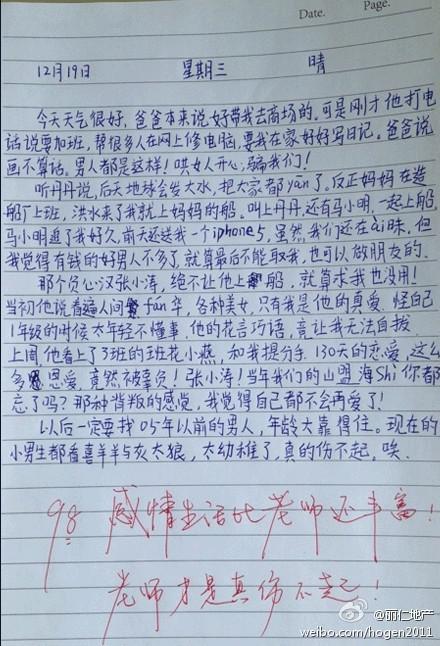 Date. Page.
12月19日 星期三 晴
今天天气很好,爸爸本来说好带我去商场的。可是刚才他打电
话说要加班,帮很多人在网上修电脑,要我在家好好写日记。爸爸说
画不算话。男人都是这样!哄女人开心,骗我们!
听丹丹说,后天地球会发大水,把大家都yān了。反正妈妈在造
船厂上班,洪水来了我就上妈妈的船。叫上丹丹,还有马小明,一起上船。
马小明追了我好久,前天还送我一个iphone5,虽然我们还在ài昧,但
我觉得有钱的好男人不多了,就算最后不能取我,也可以做朋友的。
那个负心汉张小涛,绝不让他上船,就算求我也没用!
当初他说看遍人间fán华,各种美女,只有我是他的真爱。怪自己
1年级的时候太年轻不懂事。他的花言巧语,竟让我无法自拔
上周他看上了3班的班花小燕,和我提分手。130天的恋爱,这么
多恩爱,竟然被辜负!张小涛!当年我们的山盟海Shi你都
忘了吗?那种背叛的感觉,我觉得自己都不会再爱了!
以后一定要找05年以前的男人,年龄大靠得住。现在的
小男生都看喜羊羊与灰太狼,太幼稚了,真的伤不起,唉
98 感情生活比老师还丰富!
老师才是真伤不起!
@丽仁地产
weibo.com/hogen2011